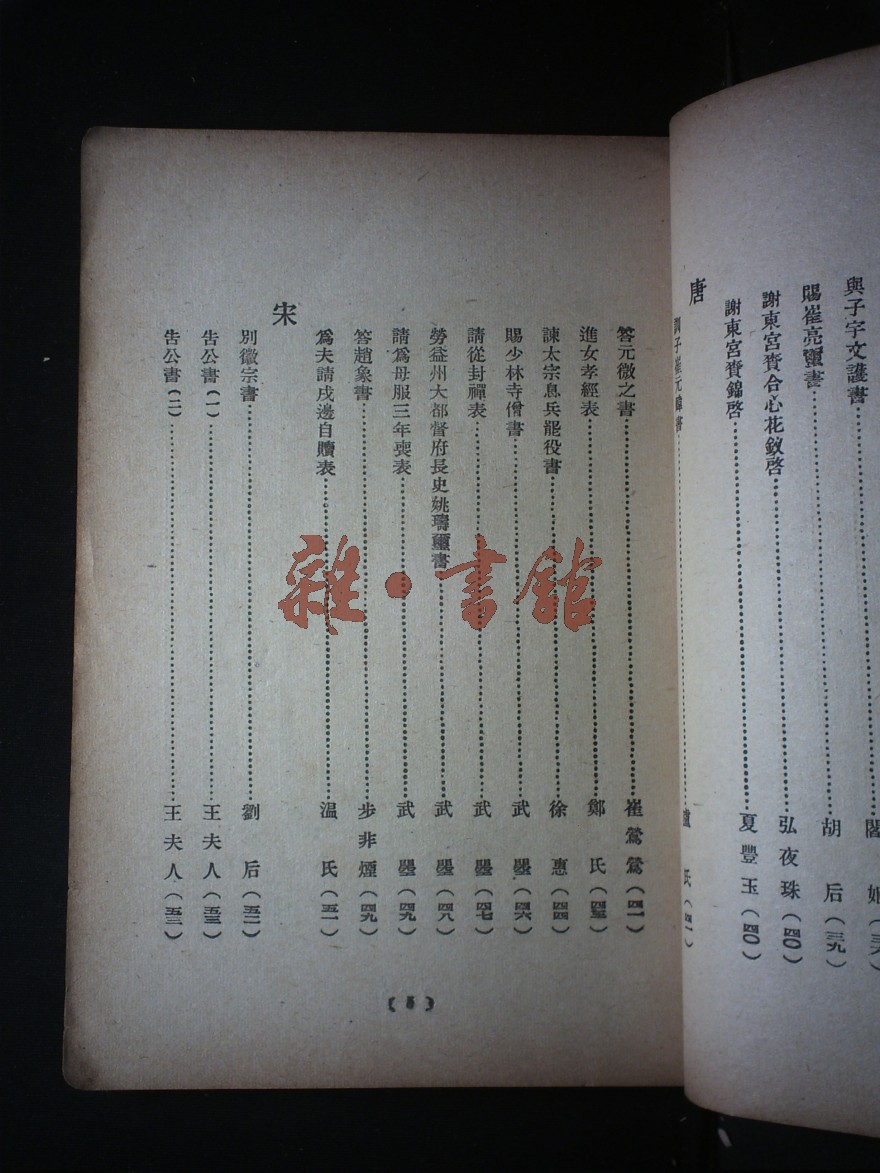 與子宇文護書 閻姬(三八)
賜崔亮璽書 胡后(三九)
謝東宮賚合心花釵啓 弘夜珠(四〇)
謝東宮賚錦啓 夏豐玉(四〇)
唐
子崔元暐書 盧氏(四一)
答元微之書 崔鶯鶯(四一)
進女孝經表 鄭氏(四三)
諫太宗息兵罷役書 徐惠(四四)
賜少林寺僧書 武曌(四六)
請從封禪表 武曌(四七)
勞益州大都督府長史姚璹璽書 武曌(四八)
請爲母服三年喪表 武曌(四九)
答趙象書 步非煙(四九)
爲夫請戍邊自贖表 溫氏(五一)
宋
別徽宗書 劉后(五二)
吿公書(一) 王夫人(五三)
吿公書(二) 王夫人(五三)
【5】
雜·書館